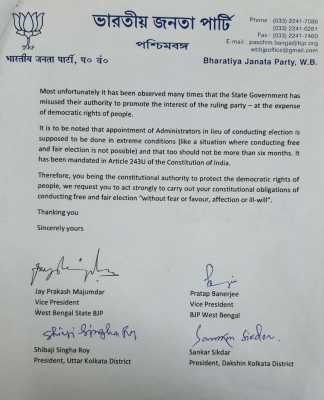 ভারতীয় জনতা পার্টি
পশ্চিমবঙ্গ
Phone : (033) 2241-7086
(033) 2241-6281
Fax : (033) 2241-7460
E-mail : paschim.bangal@bjp.org
wbbjpoffice@gmail.com
भारतीय जनता पार्टी, प० बं०
Bharatiya Janata Party, W.B.
Most unfortunately it has been observed many times that the State Government has
misused their authority to promote the interest of the ruling party – at the expense
of democratic rights of people.
It is to be noted that appointment of Administrators in lieu of conducting election is
supposed to be done in extreme conditions (like a situation where conducting free
and fair election is not possible) and that too should not be more than six months. It
has been mandated in Article 243U of the Constitution of India.
Therefore, you being the constitutional authority to protect the democratic rights of
people, we request you to act strongly to carry out your constitutional obligations of
conducting free and fair election "without fear or favour, affection or ill-will".
Thanking you
Sincerely yours
Jay Prakash Majumdar
Vice President
West Bengal State BJP
Pratap Banerjee
Vice President
BJP West Bengal
Shibaji Singha Roy
Sankar Sikdar
Shibaji Singha Roy
President, Uttar Kolkata District
Sankar Sikdar
President, Dakshin Kolkata District